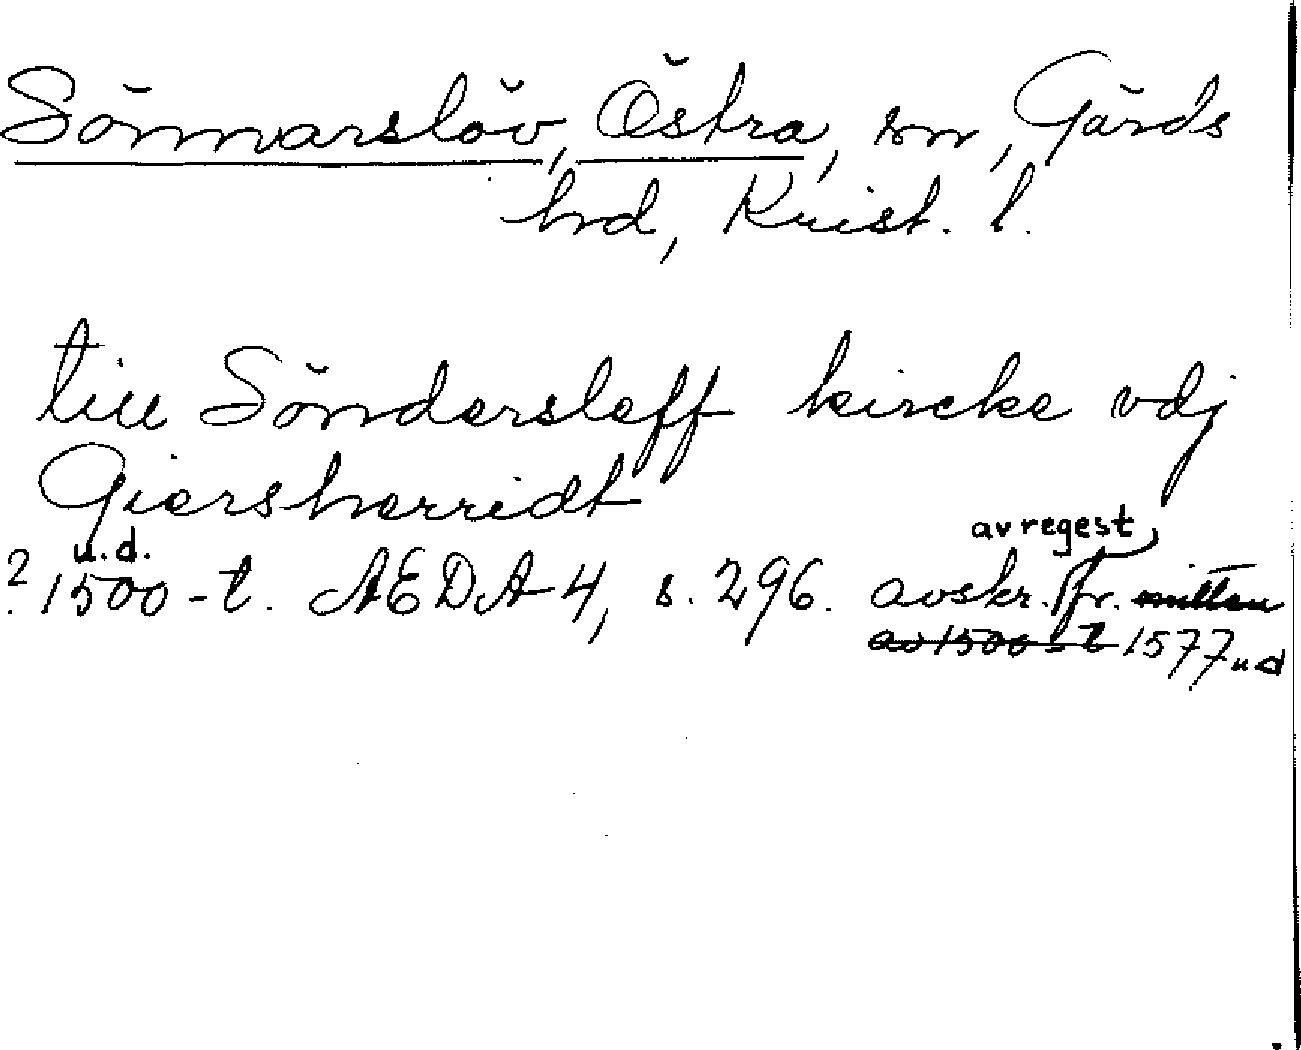 Sönnarslöv, Östra, sn, Gärds
hrd, Krist. l.
till Söndersleff kircke vdj
Giersherridt
u.d.
av regest
? 1500-t. AEDA 4, s. 296. avskr. fr. mitten
av 1500-t 1577 u d